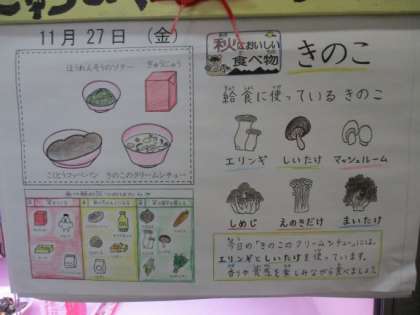 11月27日(金)
ほうれんそうのソテー
ぎゅうにゅう
こくとうコッペパン
きのこのクリームシチュー
秋においしい
食べ物
きのこ
給食に使っている きのこ
エリンギ
しいたけ
マッシュルーム
しめじ
えのきだけ
まいたけ
今日の「きのこのクリームシチュー」には、
エリンギとしいたけを使っています。
香りや食感を楽しみながら食べましょう。